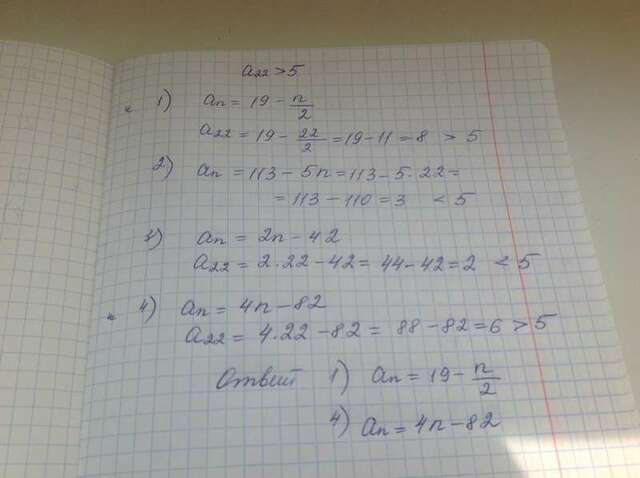 a₂₂ > 5
× 1) aₙ = 19 - n/2
a₂₂ = 19 - 22/2 = 19 - 11 = 8 > 5
2) aₙ = 113 - 5n = 113 - 5·22 =
= 113 - 110 = 3 < 5
3) aₙ = 2n - 42
a₂₂ = 2·22 - 42 = 44 - 42 = 2 < 5
× 4) aₙ = 4n - 82
a₂₂ = 4·22 - 82 = 88 - 82 = 6 > 5
Ответ 1) aₙ = 19 - n/2
4) aₙ = 4n - 82